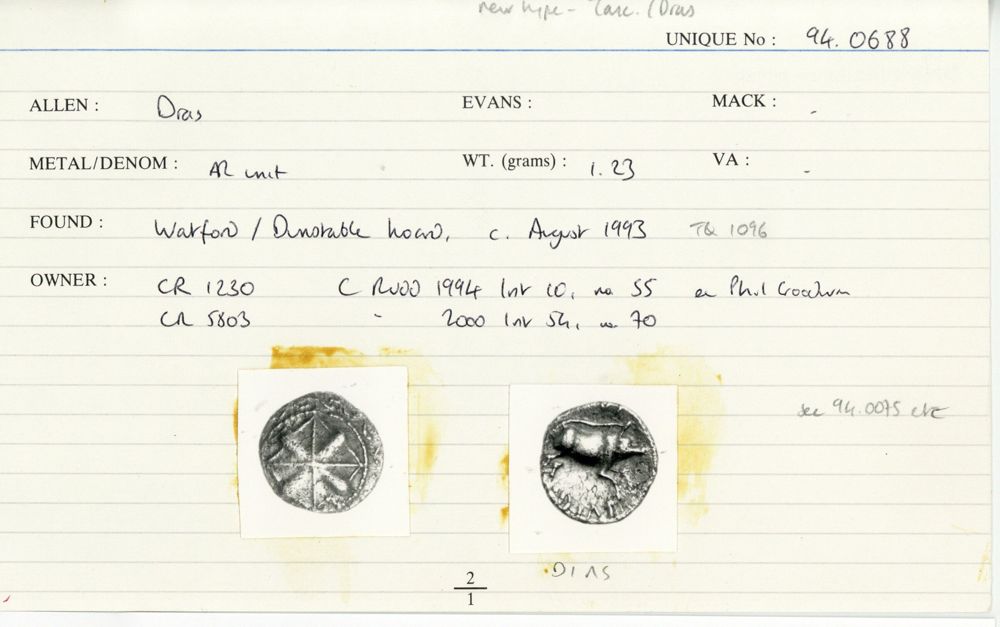 new type - Tasc. / Dias
UNIQUE No : 94.0688
ALLEN : Dias EVANS : MACK : -
METAL/DENOM : AR unit WT. (grams) : 1.23 VA : -
FOUND : Watford / Dunstable hoard, c. August 1993 TQ 1096
OWNER : CR 1230 C RUDD 1994 list 10, no 55 ex Phil
CR 5803 " 2000 list 54, no 70
see 94.0075 etc
DIAS
2
1